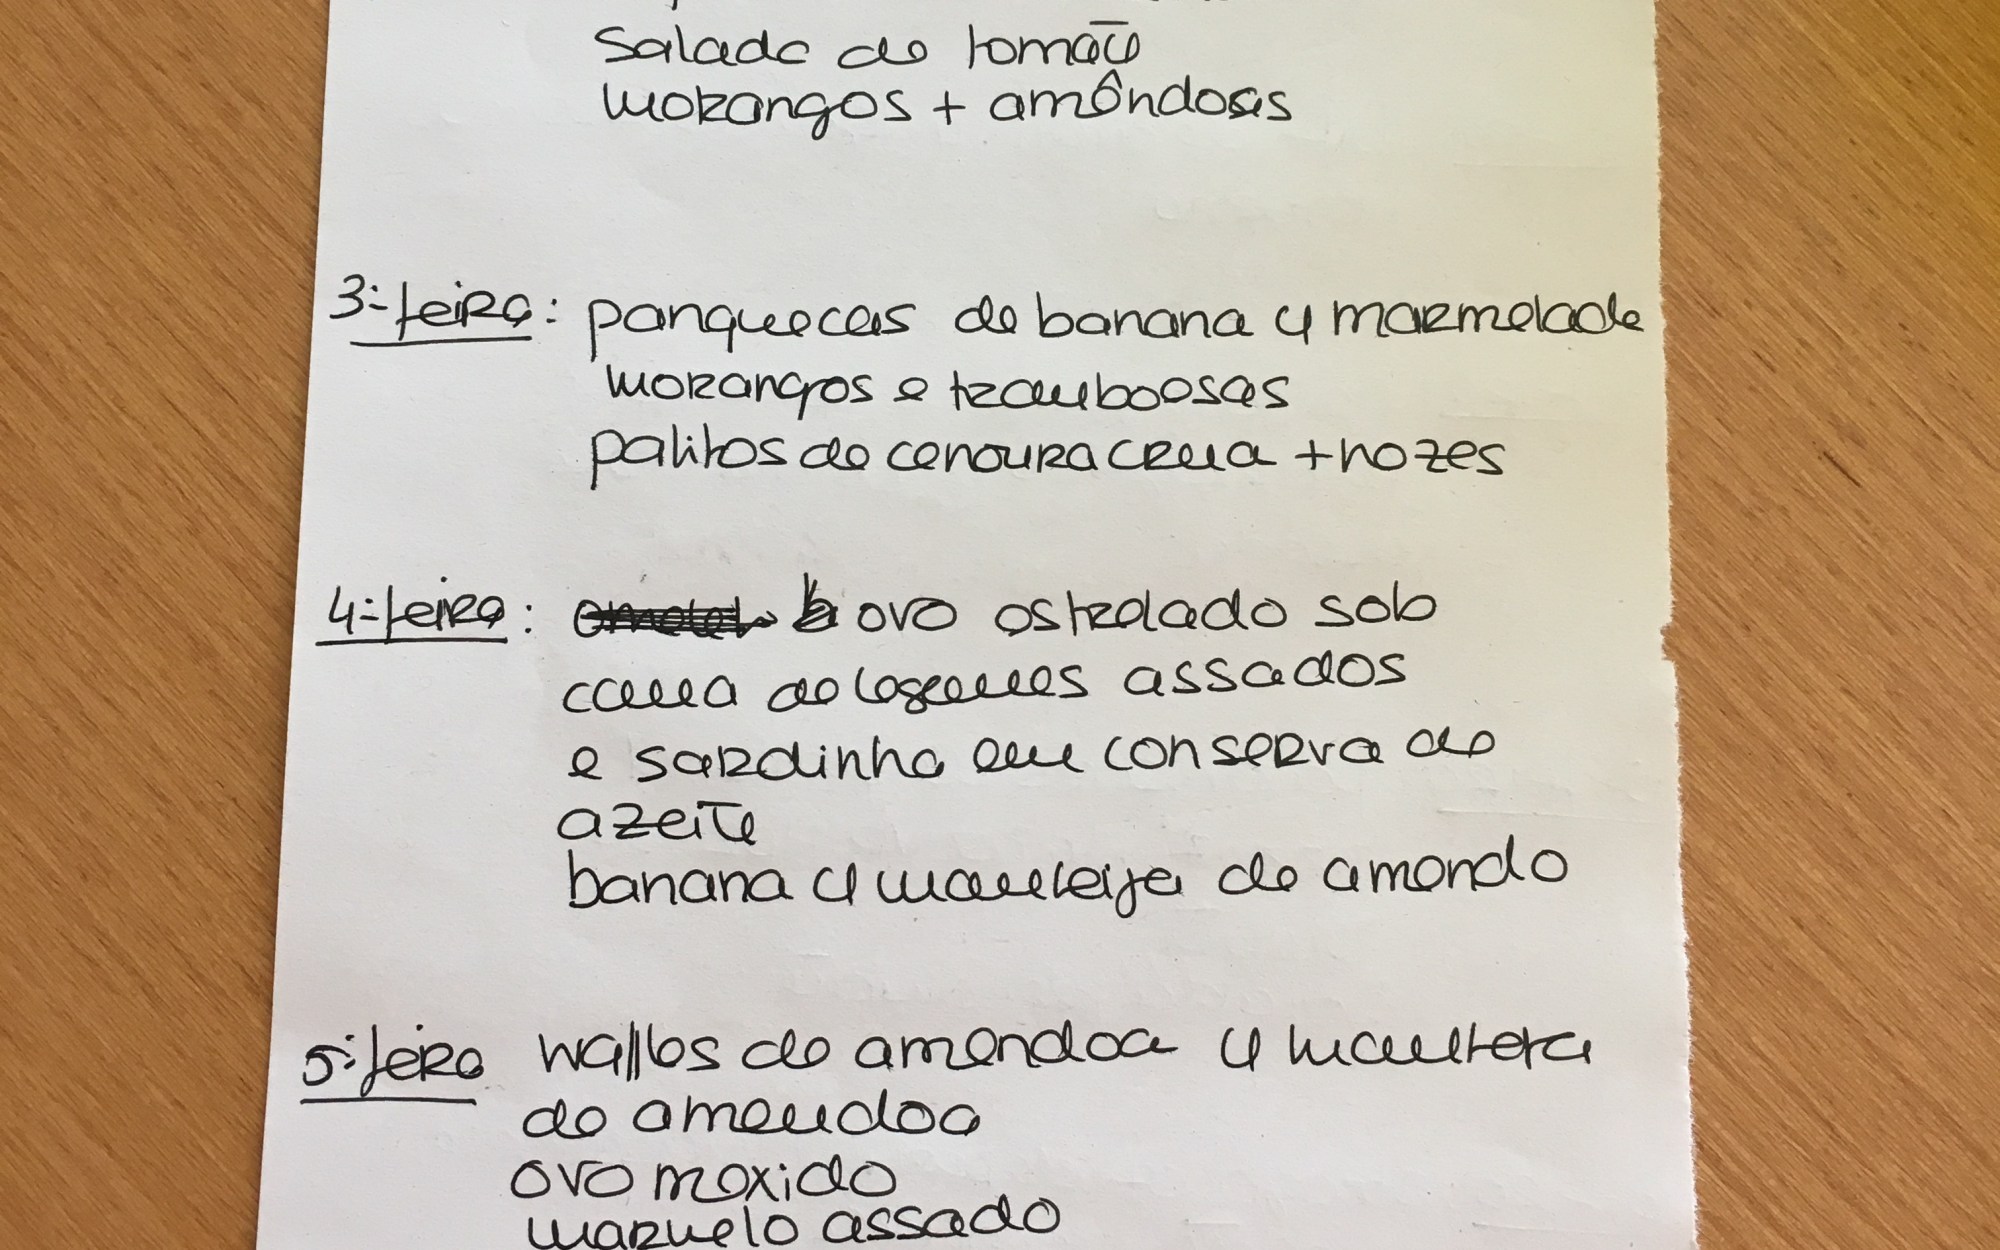 Salada de tomate
morangos + amêndoas
3ª-feira: panquecas de banana c/ marmelada
morangos e framboesas
palitos de cenoura crua + nozes
4ª-feira: ovo estrelado sob
cama de legumes assados
e sardinha em conserva de
azeite
banana c/ manteiga de amendo
5ª-feira waffles de amêndoa c/ manteiga
de amendoa
ovo mexido
marmelo assado